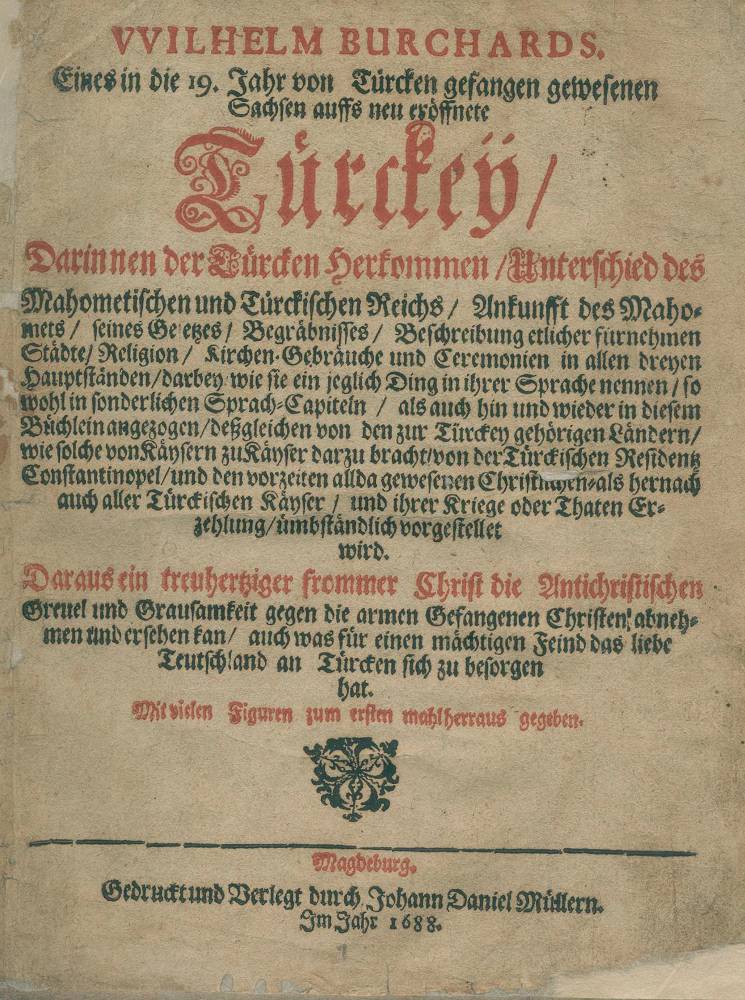 VVILHELM BURCHARDS.
Eines in die 19. Jahr von Türcken gefangen gewesenen
Sachsen auffs neu eröffnete
Türckeÿ/
Darinnen der Türcken Herkommen/Unterschied des
Mahometischen und Türckischen Reichs/ Ankunfft des Maho-
mets/ seines Gesetzes/ Begräbnisses/ Beschreibung etlicher fürnehmen
Städte/ Religion/ Kirchen-Gebräuche und Ceremonien in allen dreyen
Hauptständen/darbey wie sie ein jeglich Ding in ihrer Sprache nennen/ so
wohl in sonderlichen Sprach-Capiteln/ als auch hin und wieder in diesem
Büchlein angezogen/deßgleichen von den zur Türckey gehörigen Ländern/
wie solche von Käysern zu Käyser darzu bracht/von der Türckischen Residentz
Constantinopel/und den vorzeiten allda gewesenen Christlichen-als hernach
auch aller Türckischen Käyser/ und ihrer Kriege oder Thaten Er-
zehlung/ümbständlich vorgestellet
wird.
Daraus ein treuhertziger frommer Christ die Antichristischen
Greuel und Grausamkeit gegen die armen Gefangenen Christen/ abneh-
men und ersehen kan/ auch was für einen mächtigen Feind das liebe
Teutschland an Türcken sich zu besorgen
hat.
Mit vielen Figuren zum ersten mahl herraus gegeben.
Magdeburg.
Gedruckt und Verlegt durch Johann Daniel Müllern.
Im Jahr 1688.